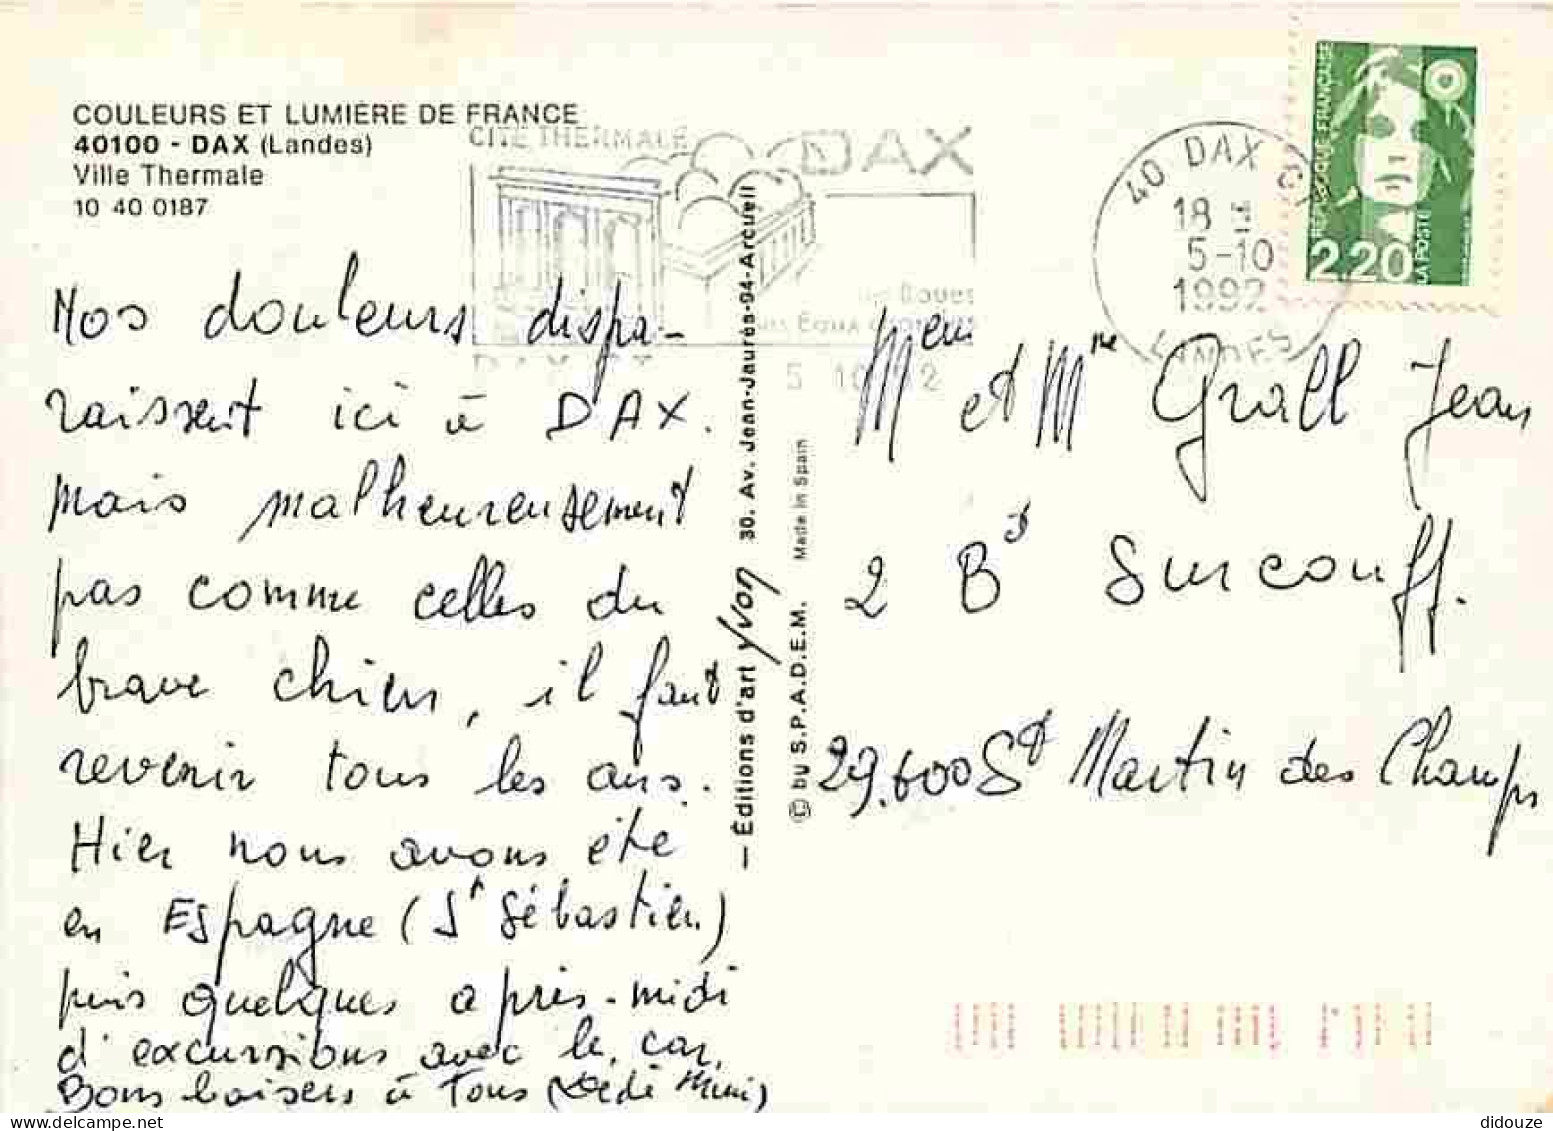 COULEURS ET LUMIÈRE DE FRANCE
40100 - DAX (Landes)
Ville Thermale
10 40 0187
CITÉ THERMALE DAX
Boues
Eaux
40 DAX
18 H
5-10
1992
LANDES
RÉPUBLIQUE FRANÇAISE
2,20
LA POSTE
Nos douleurs dispa-
raissent ici à DAX.
mais malheureusement
pas comme celles du
brave chien, il faut
revenir tous les ans.
Hier nous avons été
en Espagne (St Sébastien)
puis quelques après-midi
d'excursions avec le car.
Bons baisers à Tous (Dédé Mimi)
— Éditions d'art Yvon 30. Av. Jean-Jaurès-94-Arcueil
© by S.P.A.D.E.M. Made in Spain
Meur et Mme Grall Jean
2 Bd Surcouff.
29.600 St Martin des Champs
didouze